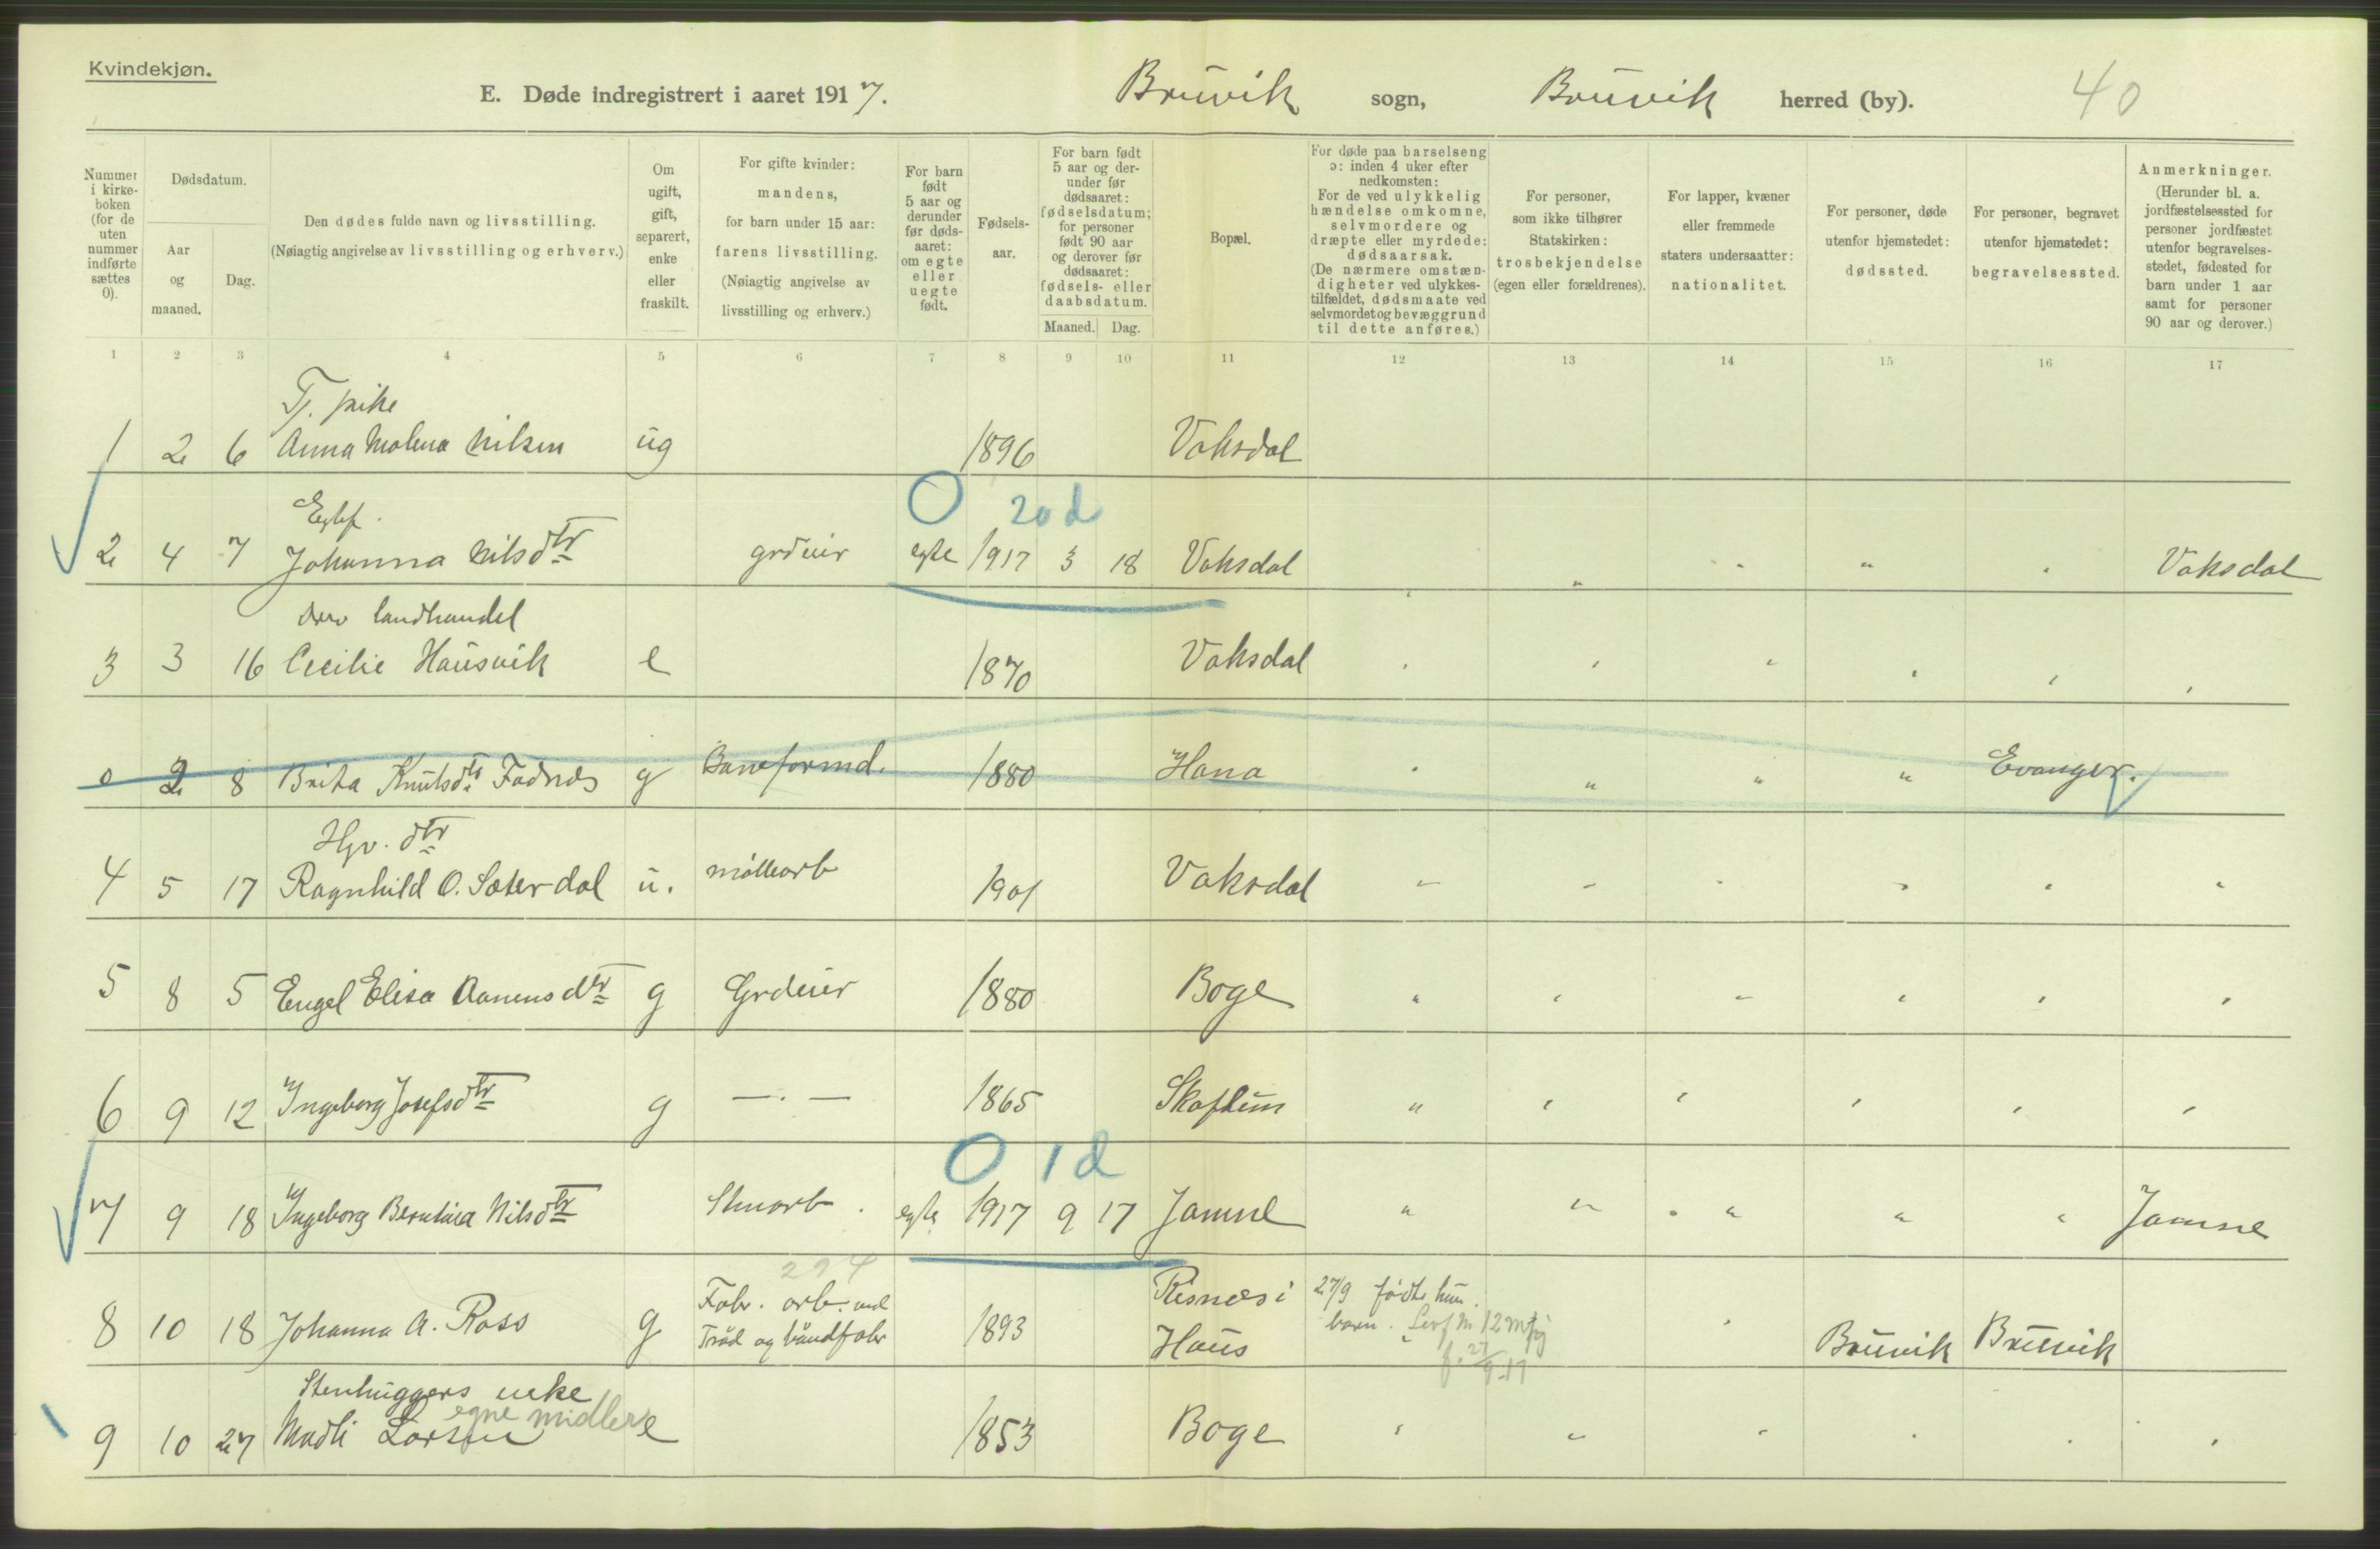 Kvindekjøn.
E. Døde indregistrert i aaret 1917. Bruvik sogn, Bruvik herred (by). 40
Nummer i kirkeboken (for de uten nummer indførte sættes 0).
Dødsdatum.
Aar og maaned.
Dag.
Den dødes fulde navn og livsstilling.
(Nøiagtig angivelse av livsstilling og erhverv.)
Om ugift, gift, separert, enke eller fraskilt.
For gifte kvinder: mandens, for barn under 15 aar: farens livsstilling. (Nøiagtig angivelse av livsstilling og erhverv.)
For barn født 5 aar og derunder før dødsaaret: om egte eller uegte født.
Fødselsaar.
For barn født 5 aar og derunder før dødsaaret: fødselsdatum; for personer født 90 aar og derover før dødsaaret: fødsels- eller daabsdatum.
Maaned. Dag.
Bopæl.
For døde paa barselseng ɔ: inden 4 uker efter nedkomsten: For de ved ulykkelig hændelse omkomne, selvmordere og dræpte eller myrdede: dødsaarsak. (De nærmere omstændigheter ved ulykkestilfældet, dødsmaate ved selvmordet og bevæggrund til dette anføres.)
For personer, som ikke tilhører Statskirken: trosbekjendelse (egen eller forældrenes).
For lapper, kvæner eller fremmede staters undersaatter: nationalitet.
For personer, døde utenfor hjemstedet: dødssted.
For personer, begravet utenfor hjemstedet: begravelsessted.
Anmerkninger. (Herunder bl. a. jordfæstelsessted for personer jordfæstet utenfor begravelsesstedet, fødested for barn under 1 aar samt for personer 90 aar og derover.)
1 2 3 4 5 6 7 8 9 10 11 12 13 14 15 16 17
Tj. pike
1 2 6 Anna Molena Nilsen ug 1896 Vaksdal
Egtef. O 20 d
2 4 7 Johanna Nilsdtr grdeier egte 1917 3 18 Vaksdal " " " " " Vaksdal
drev landhandel
3 3 16 Cecilie Hausvik e 1870 Vaksdal " " " " " "
0 2 8 Brita Knutsdtr Fadnes g Baneformd. 1880 Hana " " " " Evanger.
Hjv. dtr
4 5 17 Ragnhild O. Sæterdal u. møllearb 1901 Vaksdal " " " " " "
5 8 5 Engel Elisa Aamunsdtr g Grdeier 1880 Boge " " " " " "
6 9 12 Ingeborg Josefsdtr g — . — 1865 Skaftun " " " " " "
O 1 d
7 9 18 Ingeborg Bertina Nilsdtr Stenarb. egte 1917 9 17 Jamne " " " " " Jamne
294
8 10 18 Johanna A. Ross g Fabr. arb. ved Tråd og båndfabr 1893 Risnes i Haus 27/9 fødte hun barn. Levf Nr 12 " Bruvik Bruvik
f. 27/9 17
Stenhuggers enke
egne midler
9 10 27 Madli Larsen e 1853 Boge " " " " " "